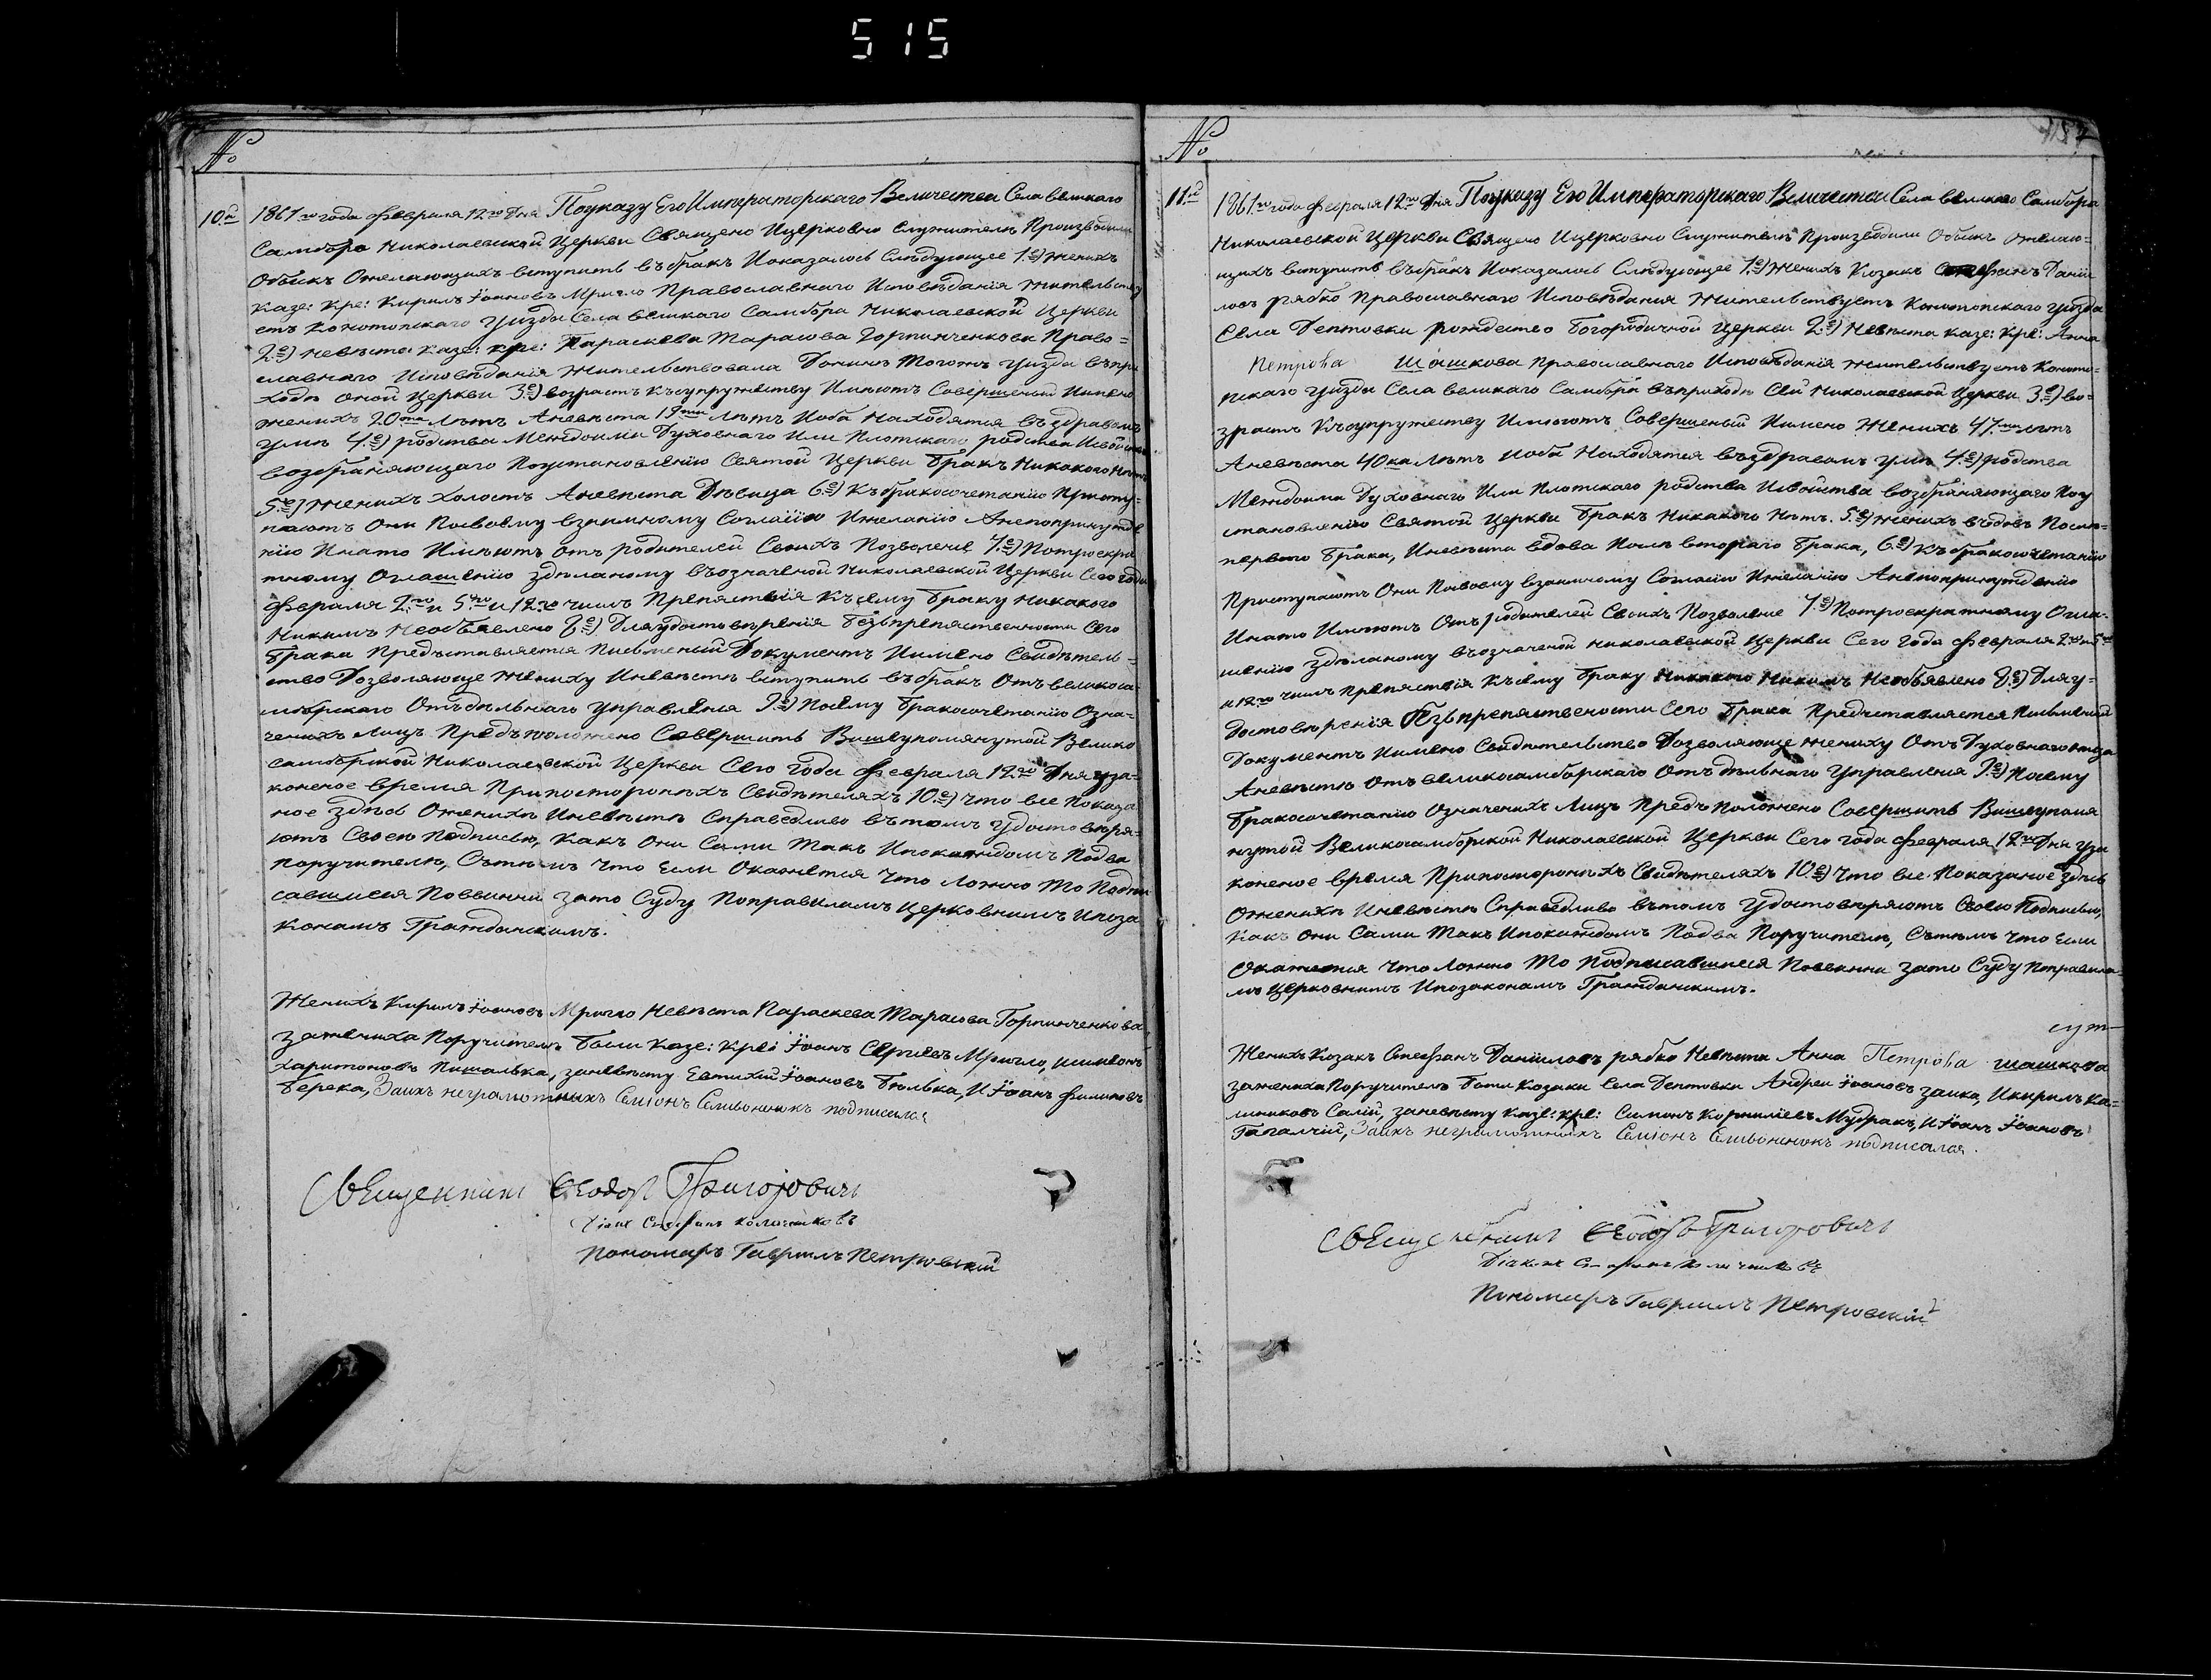 515
№
10.й
1861го года февраля 12го дня Поуказу Его Императорскаго Величества Села великаго
Самбора Николаевской Церкви Священо Ицерковно Служители Производили
Обыск Ожелающихъ вступить въбракъ Иоказалось Слѣдующее 1.е) Женихъ
казе: кре: Кирилъ Іоановъ Мричло Православнаго Исповѣданія Жительству
етъ Конотопскаго Уизда Села великаго Самбора Николаевской Церкви
2.е) невѣста казе: кре: Параскева Тарасова Горпинченкова Право=
славнаго Исповѣданія Жительствовала Донинѣ Тогожъ Уизда въпри
ходѣ оной Церкви 3.е) возрастъ Ксупружеству Имѣютъ Совершеный Иимено
женихъ 20ти лѣтъ Аневѣста 19ти лѣтъ Иоба Находятся въздравомъ
Умѣ 4.е) родства Междоими Духовнаго Или Плотскаго родства Исвойства
возбраняющаго Поустановленію Святой Церкви бракъ Никакого Нѣтъ
5.е) Женихъ Холостъ Аневѣста Дѣвица 6.е) Къбракосочетанію Присту=
паютъ Они Посвоему взаимному Согласію Ижеланію Анепопринужде
нію Инато Имѣютъ отъ родителей Своихъ Позволеніе 7.е) Потроекра
тному Оглашенію здѣланому въозначеной Николаевской Церкви Сего года
февраля 2.го и 5.го и 12го числъ Препяствія Къему браку Никакого
Никимъ Необъявлено 8.е) Дляудостовѣренія безъпрепяственности Сего
брака Предъставляется Письменый Документъ Иимено Свидѣтель=
ство Дозволяюще Жениху Иневѣстѣ вступить въбракъ Отъ великоса
мборскаго Отъдѣльнаго Управленія 9.е) Посему бракосочетанію Озна=
ченихъ лицъ Предъположено Совершить Вишеупомянутой Велико
самборской Николаевской Церкви Сего года февраля 12го Дня уза=
коненое время Припостороныхъ Свидѣтеляхъ 10.е) Что все Показа
ное здѣсь Оженихѣ Иневѣстѣ Справедливо вътомъ Удостовѣря=
ютъ Своею Подписью, Какъ Они Сами Такъ Ипокаждомъ Подва
поручителю, Сътѣмъ что Если Окажется Что Ложно То Подпи
савшиеся Повинни зато Суду Поправиламъ Церковнимъ Ипоза
конамъ Гражданскимъ.
Женихъ Кирилъ Іоановъ Мричло Невѣста Параскева Тарасова Горпинченкова
Зажениха Поручителѣ били казе: кре: Іоанъ Сергіевъ Мричло, исимеонъ
Харитоновъ Пишалька, заневѣсту Евтихій Іоановъ Бюлька, И Іоанъ филиповъ
Берека, Заихъ неграмотныхъ Семіонъ Сливоненокъ подписался
Священникъ Ѳеодоръ Григоровичъ
Діакъ Стефанъ Колесниковъ
Пономарь Гаврилъ Петровскій
№
11.й
1861го года февраля 12го Дня Поуказу Его Императорскаго Величества Села великаго Самбора
Николаевской Церкви Священо Ицерковно Служители Производили Обыскъ Ожелаю=
щихъ вступить въбракъ Иоказалось Слѣдующее 1.е) Женихъ Козакъ Стефанъ Даніи
ловъ рябко Православнаго Исповѣданія Жительствуетъ Конотопскаго Уизда
Села Дептовки рождество Богородичной Церкви 2.е) Невѣста казе: кре: Анна
Петрова Шашкова Православнаго Исповѣданія Жительствуетъ Коното=
пскаго Уизда Села великаго Самбора въприходѣ Сей Николаевской Церкви 3.е) во=
зрастъ Къупружеству Имѣютъ Совершеный Иимено Женихъ 47.ми лѣтъ
Аневѣста 40ка лѣтъ Иоба Находятся въздравомъ Умѣ 4.е) родства
Междоими Духовнаго Или Плотскаго родства Исвойства возбраняющаго Поу
становленію Святой Церкви бракъ Никакого Нѣтъ. 5.е) Женихъ въдовъ Послѣ=
первого брака, Иневѣста вдова Послѣ второго брака, 6.е) Къбракосочетанію
Приступаютъ Они Посвоему взаимному Согласію Ижеланію Анепопринужденію
Инато Имѣютъ Отъ родителей Своихъ Позволеніе 7.е) Потроекратному Огла=
шенію здѣланому въозначеной николаевской Церкви Сего года февраля 2го и 5го
и 12го числъ Препяствія Къему браку Никимъ Необъявлено 8.е) Дляу=
достовѣренія безъпрепяствености Сего брака Предъставляется Письменый
Документъ Иимено Свидѣтельство Дозволяюще жениху Отъ Духовнаго отца
Аневѣстѣ Отъ великосамборскаго Отъдѣльнаго Управленія 9.е) Посему
бракосочетанію Означенихъ Лицъ Предъположено Совершить Вишеупомя
нутой Великосамборской Николаевской Церкви Сего года февраля 12го Дня уза
коненое время Припостороныхъ Свидѣтеляхъ 10.е) Что все Показаное здѣсь
Оженихѣ Иневѣстѣ Справедливо вътомъ Удостовѣряютъ Своею Подписью,
Какъ они Сами Такъ Ипокаждомъ Подва Поручителю, Сътѣмъ что Если
Окажется Что Ложно То Подписавшиеся Повинни зато Суду Поправила
мъ Церковнимъ Ипозаконамъ Гражданскимъ.
Женихъ Козакъ Стефанъ Даниловъ рябко Невѣста Анна Петрова шашкова
зажениха Поручителѣ били Козаки Села Дептовки Андреи Іоановъ заика, Икирилъ Ка=
линиковъ Салій, заневѣсту казе: кре: Симонъ Корниліевъ Мудракъ, И Іоанъ Іоановъ
Гапалчій, Заихъ неграмотныхъ Семіонъ Сливоненокъ подписался.
Священникъ Ѳеодоръ Григоровичъ
Діаконъ Стефанъ Колесниковъ
Пономарь Гаврилъ Петровскій